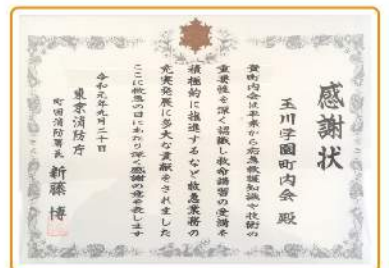 感謝状
玉川学園町内会 殿
貴町内会は平素から応急救護知識や技術の
重要性を深く認識し救命講習の受講を
積極的に推進するなど救急業務の
充実発展に多大な貢献をされました
ここに救急の日にあたり深く感謝の意を表します
令和元年九月二十日
東京消防庁
町田消防署長 新藤 博